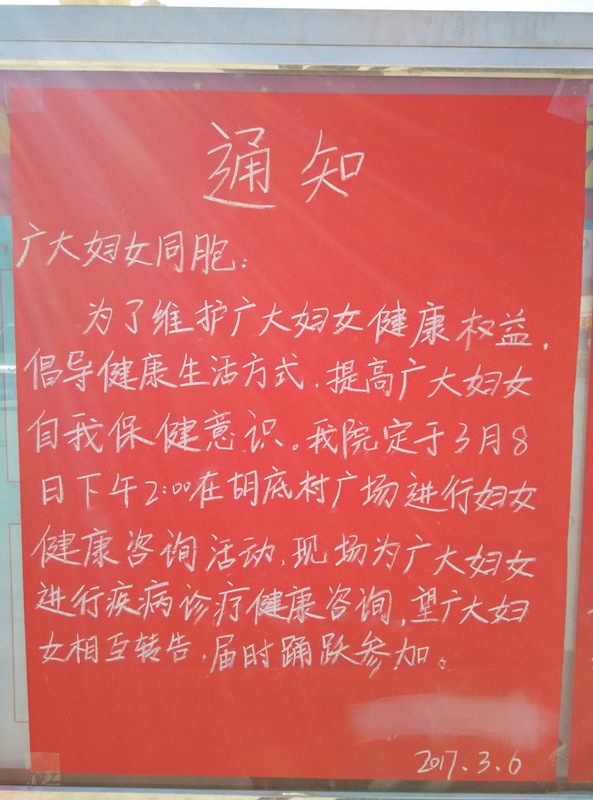 通知
广大妇女同胞：
为了维护广大妇女健康权益，
倡导健康生活方式，提高广大妇女
自我保健意识。我院定于3月8
日下午2:00在胡底村广场进行妇女
健康咨询活动，现场为广大妇女
进行疾病诊疗健康咨询，望广大妇
女相互转告，届时踊跃参加。
2017.3.6